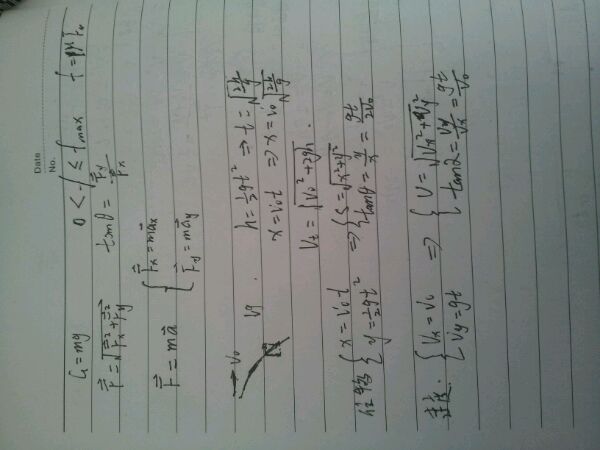 Date
No.
G = mg   0 < f ≤ fmax   f = μF₀
F⃗ = √(F⃗x² + F⃗y²)   tanθ = F⃗y/F⃗x
F⃗ = ma⃗   { F⃗x = ma⃗x
F⃗y = ma⃗y
V₀   Vy   h = ½gt² ⇒ t = √(2h/g)
x = v₀t ⇒ x = v₀√(2h/g)
Vt = √(V₀² + 2gh)
位移 { x = v₀t   ⇒ { S = √(x² + y²)
y = ½gt²   tanθ = y/x = gt/2v₀
速度. { Vx = V₀   ⇒ { V = √(Vx² + Vy²)
Vy = gt   tanα = Vy/Vx = gt/V₀